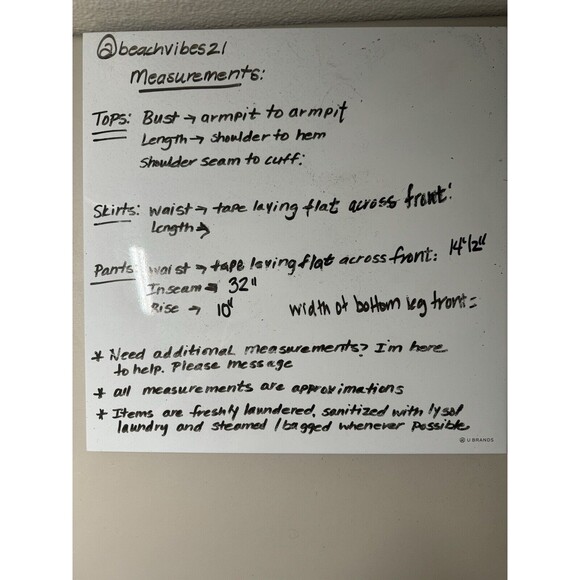 @beachvibes21
Measurements:
Tops: Bust → armpit to armpit
Length → shoulder to hem
Shoulder seam to cuff:
Skirts: Waist → tape laying flat across front:
Length →
Pants: Waist → tape laying flat across front: 14 1/2"
Inseam → 32"
Rise → 10" width of bottom leg front =
* Need additional measurements? I'm here
to help. Please message
* all measurements are approximations
* Items are freshly laundered, sanitized with lysol
laundry and steamed / bagged whenever possible
U BRANDS